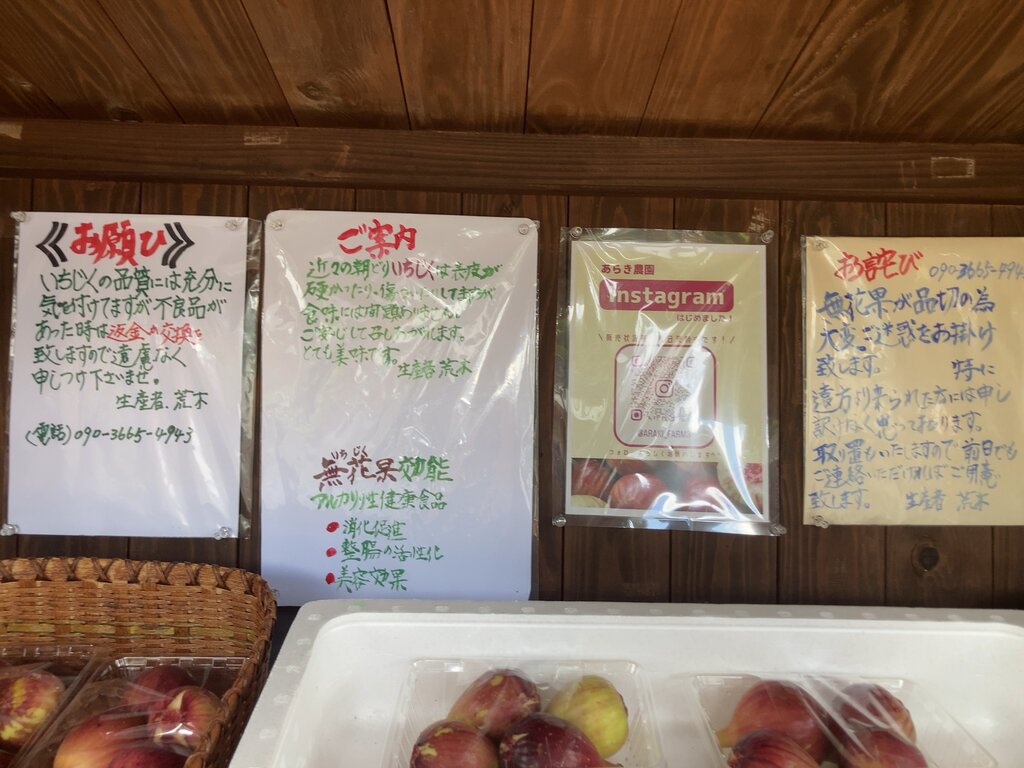 《お願い》
いちじくの品質には充分に
気を付けてますが不良品が
あった時は返金、交換を
致しますので遠慮なく
申しつけ下さいませ。
生産者、荒木
(電話)090-3665-4943
ご案内
近々の朝どりいちじくは表皮が
硬かったり、傷
食味には何ら
ご安心して召し上がれます。
とても美味です。
生産者 荒木
いちじく
無花果効能
アルカリ性健康食品
●消化促進
●整腸の活性化
●美容効果
あらき農園
Instagram
はじめました!
@ARAKI_FARM
お詫び 090-3665-494
無花果が品切の為
大変ご迷惑をお掛け
致します。 特に
遠方より来られた方には申し
訳けなく思って居ります。
取り置きもいたしますので前日でも
ご連絡いただければご用意
致します。 生産者 荒木